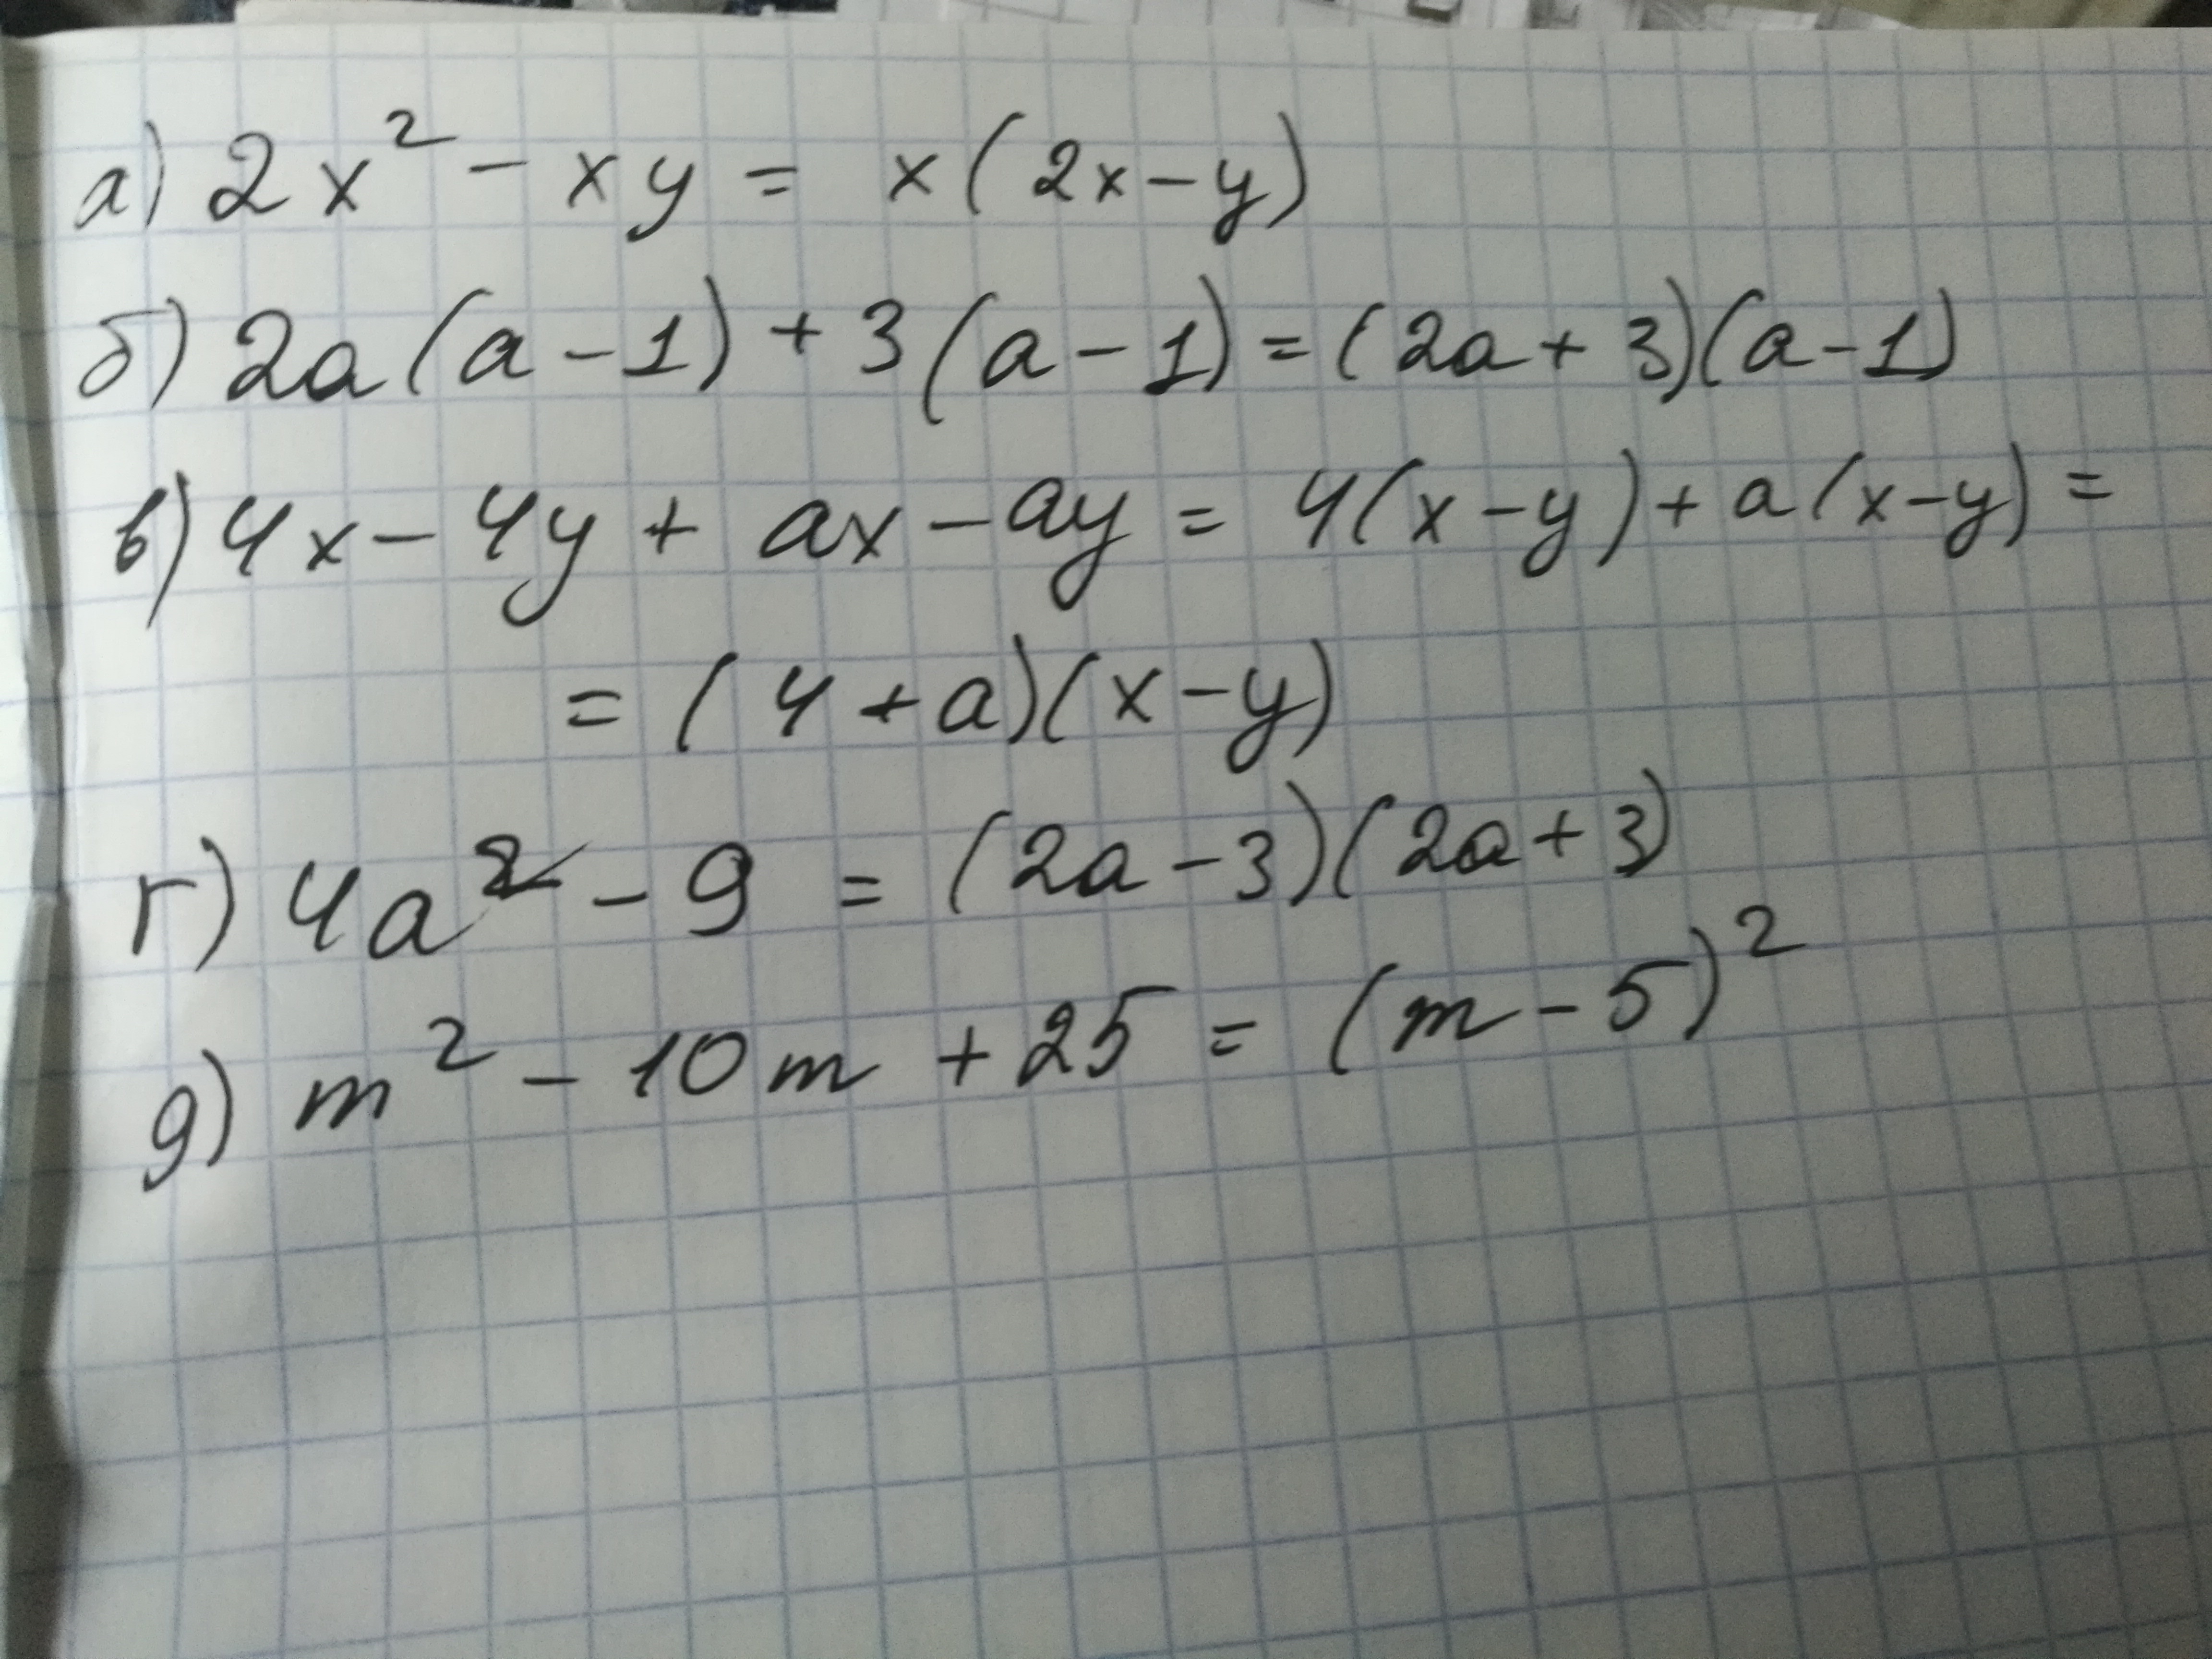 а) 2x² - xy = x(2x-y)
б) 2a(a-1) + 3(a-1) = (2a+3)(a-1)
в) 4x - 4y + ax - ay = 4(x-y) + a(x-y) =
= (4+a)(x-y)
г) 4a² - 9 = (2a-3)(2a+3)
д) m² - 10m + 25 = (m-5)²